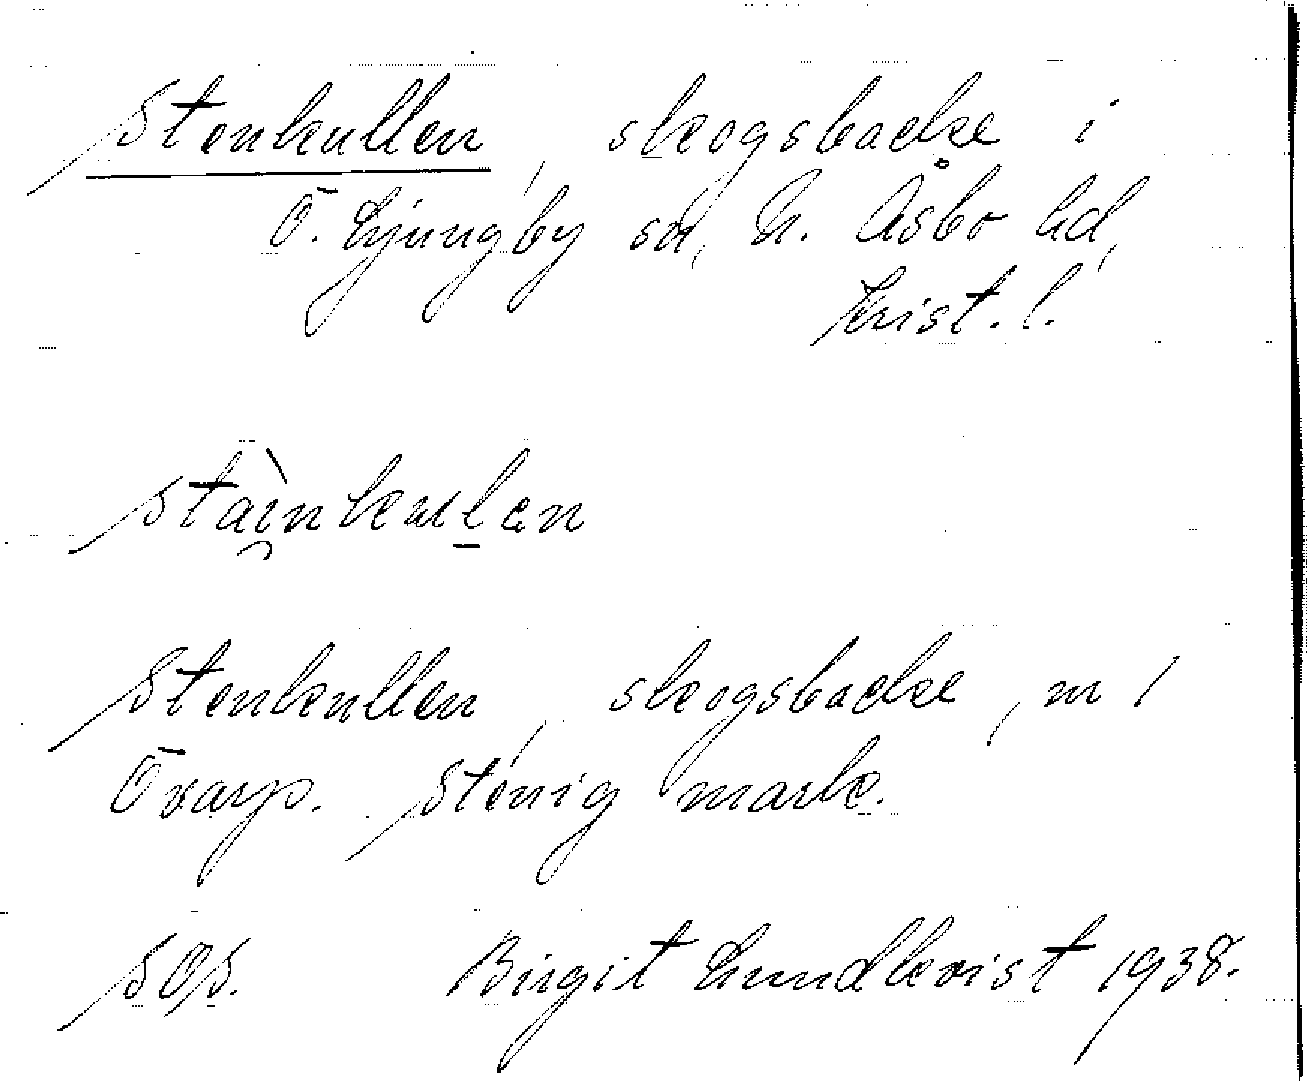 Stenkullen, skogsbacke i
Ö. Ljungby sn, N. Åsbo hd,
Krist. l.
stài̯nkulen
Stenkullen, skogsbacke, m 1
Övarp. Stenig mark.
SOS. Birgit Lundkvist 1938.